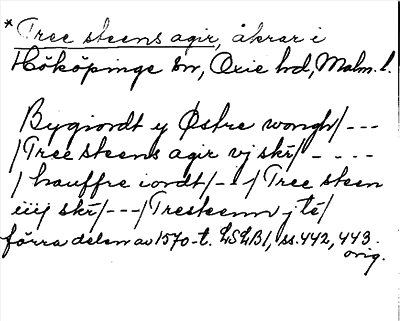 * Tree steens agir, åkrar i
Hököpinge sn, Oxie hd, Malm. l.
Bygiordt y Østre wongh/---
/Tree steens agir vj skr/ - ---
/ hauffre iordt/---/ Tree steen
iiij skr/---/ Tresteenn j té/
förra delen av 1570-t. LSLB1, ss. 442, 443.
orig.